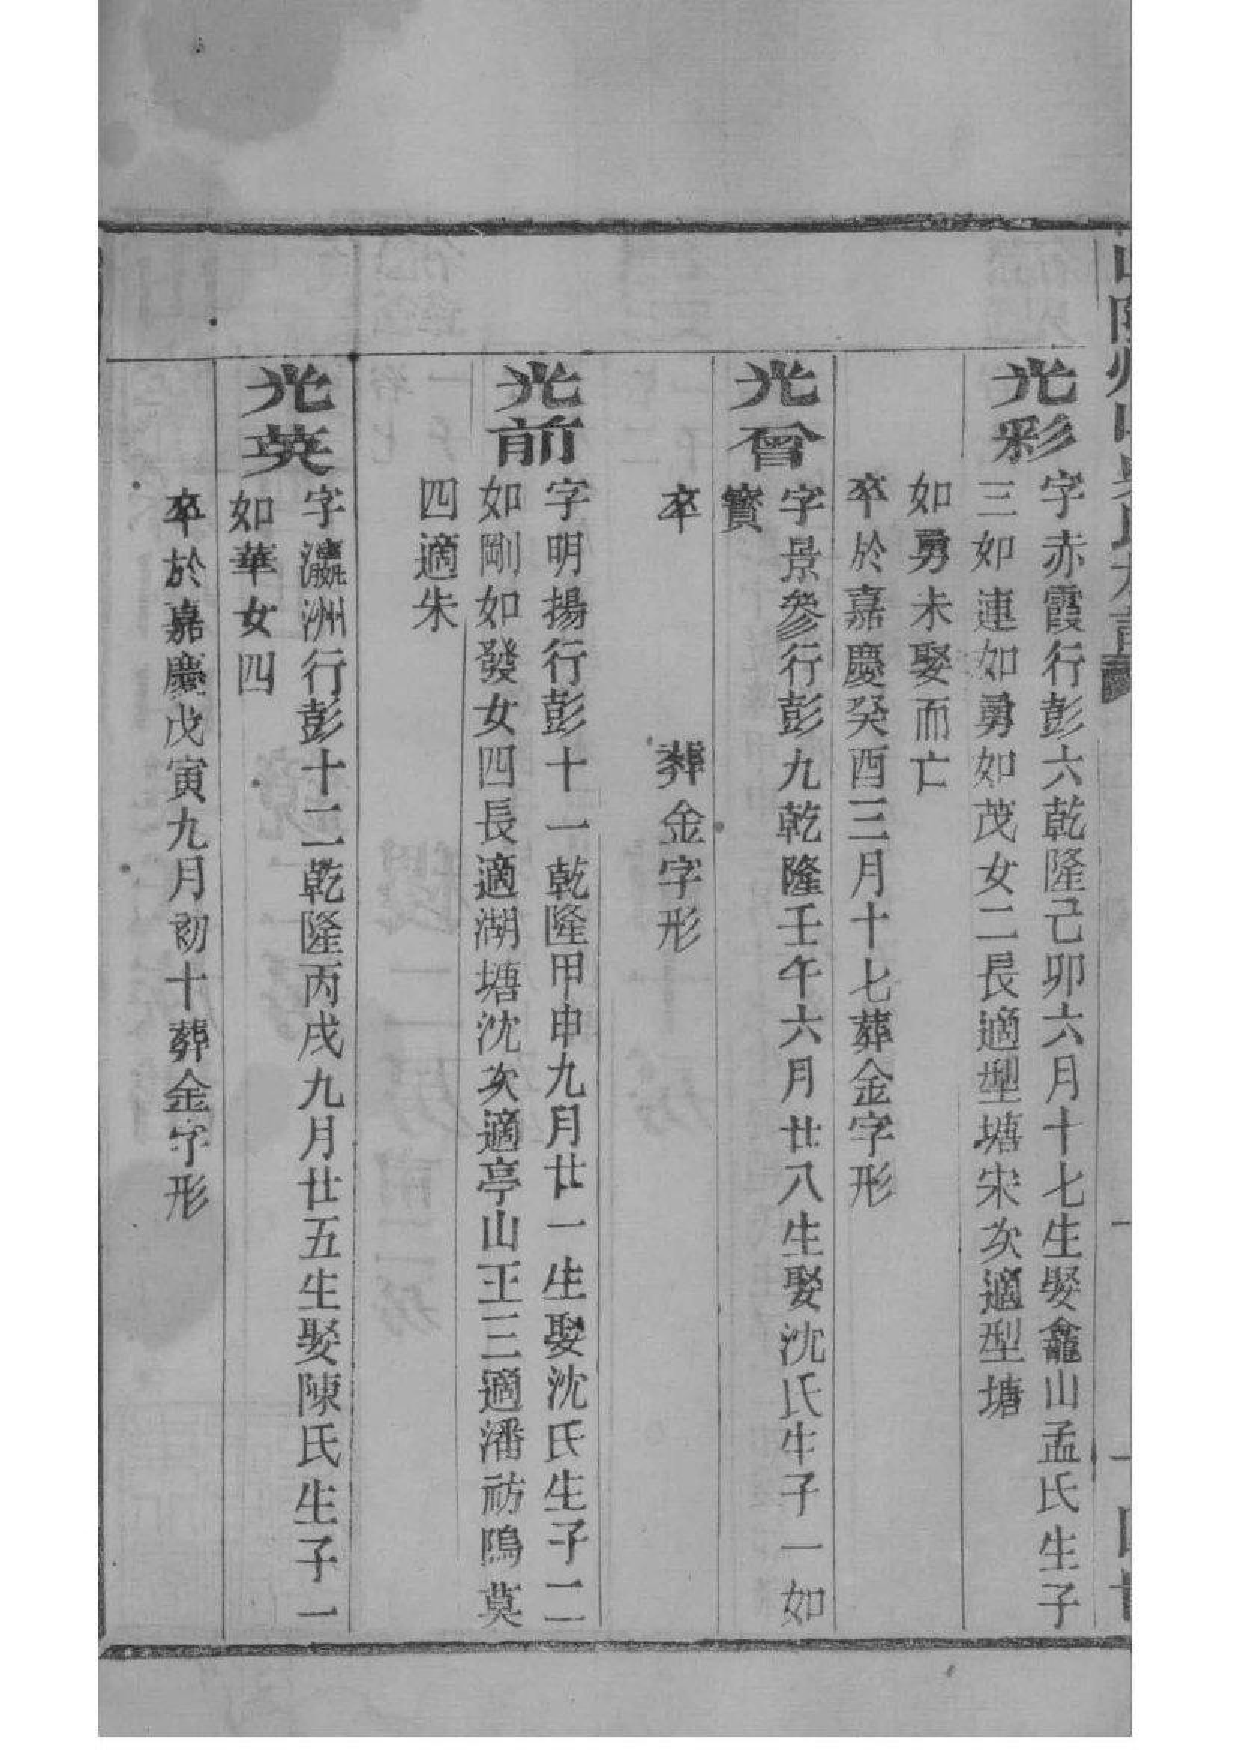 光彩
字赤霞行彭六乾隆己卯六月十七生娶龕山孟氏生子
三如連如勇如茂女二長適型塘宋次適型塘
如勇未娶而亡
卒於嘉慶癸酉三月十七葬金字形
光曾
字景參行彭九乾隆壬午六月廿八生娶沈氏生子一如
賓
卒 葬金字形
光前
字明揚行彭十一乾隆甲申九月廿一生娶沈氏生子二
如剛如發女四長適湖塘沈次適亭山王三適潘祊隖莫
四適朱
光英
字瀛洲行彭十二乾隆丙戌九月廿五生娶陳氏生子一
如華女四
卒於嘉慶戊寅九月初十葬金字形